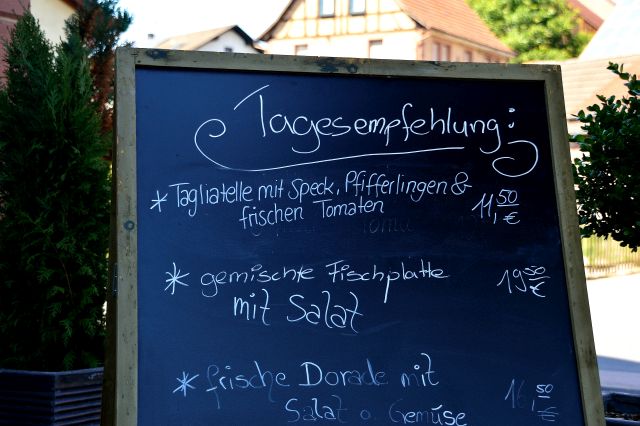 Tagesempfehlung:
* Tagliatelle mit Speck, Pfifferlingen & 11,50
frischen Tomaten €
* gemischte Fischplatte 19,50 €
mit Salat
* frische Dorade mit 16,50 €
Salat o. Gemüse